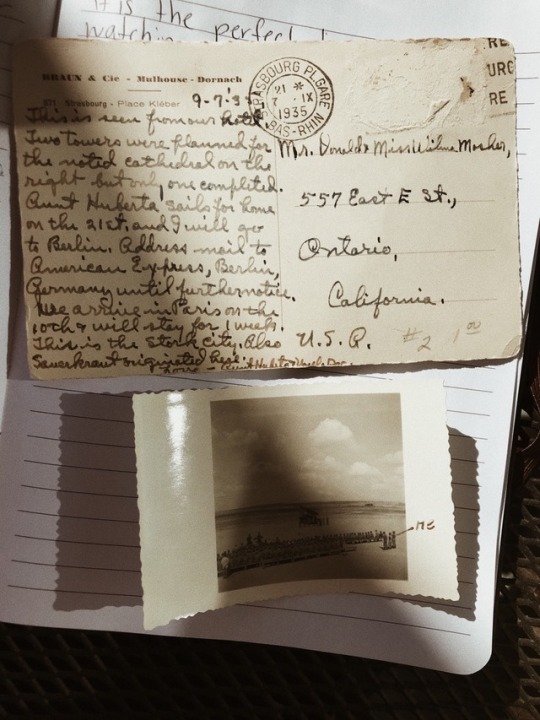 it is the perfect
watching
BRAUN & Cie - Mulhouse-Dornach
871 Strasbourg - Place Kléber
9-7-35
This is seen from our hotel.
Two towers were planned for
the noted cathedral on the
right but only one completed.
Aunt Huberta sails for home
on the 21st, and I will go
to Berlin. Address mail to
American Express, Berlin,
Germany until further notice.
We arrive in Paris on the
10th & will stay for 1 week.
This is the Stork city. Also
Sauerkraut originated here.
Love - Aunt Huberta & Uncle Doc.
STRASBOURG PL. GARE
21 *
7 - IX
1935
BAS-RHIN
RE
URG
RE
Mr. Donald & Miss Wilma Mosher,
557 East E St.,
Ontario,
California.
U.S.A.
#2 1 00
ME